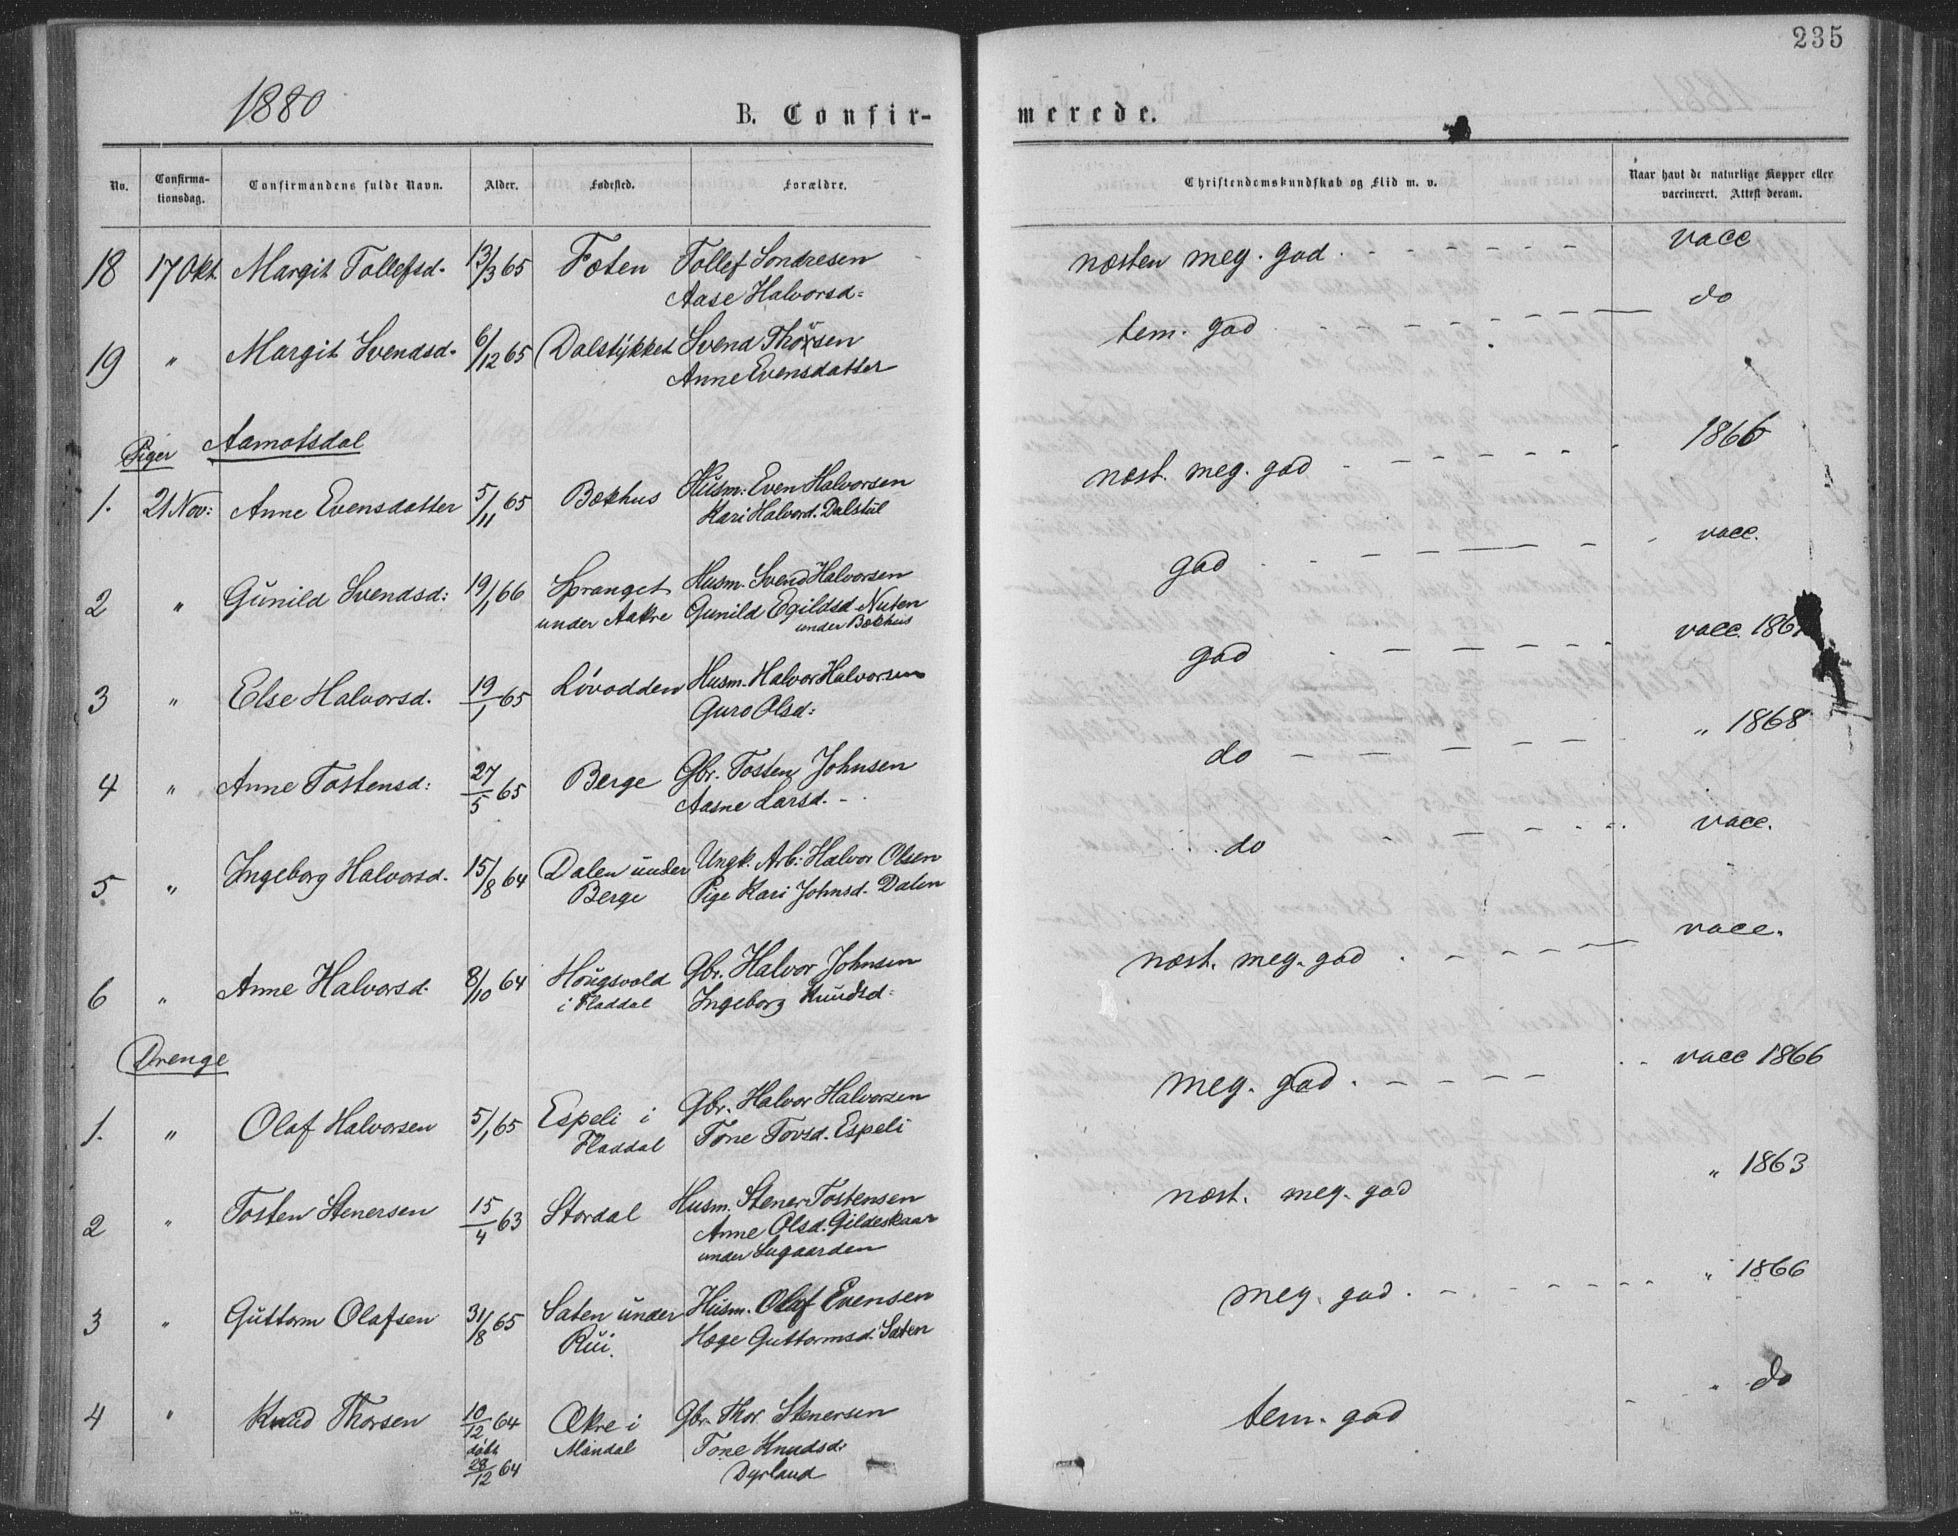 235
1880
B. Confir-
merede.
No.
Confirma-
tionsdag.
Confirmandens fulde Navn.
Alder.
Fødested.
Forældre.
Christendomskundskab og Flid m. v.
Naar havt de naturlige Kopper eller
vaccineret. Attest derom.
18 17 Okt Margit Tollefsd. 13/3 65 Foten Tollef Sondresen næsten meg. god. vacc
Aase Halvorsd:
19 " Margit Svendsd. 6/12 65 Dalstykket Svend Thorsen tem. god do
Anne Evensdatter
Piger Aamotsdal
1. 21 Nov: Anne Evensdatter 5/11 65 Bækhus Husm: Even Halvorsen næst. meg. god 1866
Kari Halvord. Dalstül
2 " Gunild Svendsd: 19/1 66 Spranget Husm. Svend Halvorsen god vacc.
under Aakre Gunild Egildsd. Nuten
under Bækhus
3 " Else Halvorsd. 19/1 65 Lövodden Husm. Halvor Halvorsen god vacc. 186
Guro Olsd:
4 " Anne Tostensd: 27/5 65 Berge Gbr. Tosten Johnsen do " 1868
Aasne Larsd.
5 " Ingeborg Halvorsd. 15/8 64 Dalen under Ungk. Arb: Halvor Olsen do vacc.
Berge Pige Kari Johnsd. Dalen
6 " Anne Halvorsd. 8/10 64 Hougsvold Gbr. Halvor Johnsen næst. meg. god vacc.
i Fladdal Ingeborg Knudsd:
Drenge
1. " Olaf Halvorsen 5/1 65 Espeli i Gbr. Halvor Halvorsen meg. god. vacc 1866
Fladdal Tone Tovsd. Espeli
2 " Tosten Stenersen 15/4 63 Stordal Husm. Stener Tostensen næst. meg. god " 1863
Anne Olsd. Gildeskaar
under Sugaarden
3 " Guttorm Olafsen 31/8 65 Saten under Husm. Olaf Evensen meg. god. " 1866
Rüi. Hæge Guttormsd. Saten
4 " Knud Thorsen 10/12 64 Økre i Gbr. Thor Stenersen tem. god " do
döbt Mandal Tone Knudsd:
28/12 64 Dyrland